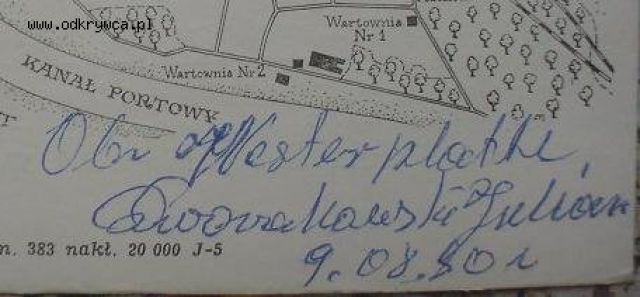 www.odkrywca.pl
Wartownia
Nr 1
Wartownia Nr 2
KANAŁ PORTOWY
Westerplatte
Julian
m. 383 nakł. 20 000 J-5
9.08.80 r